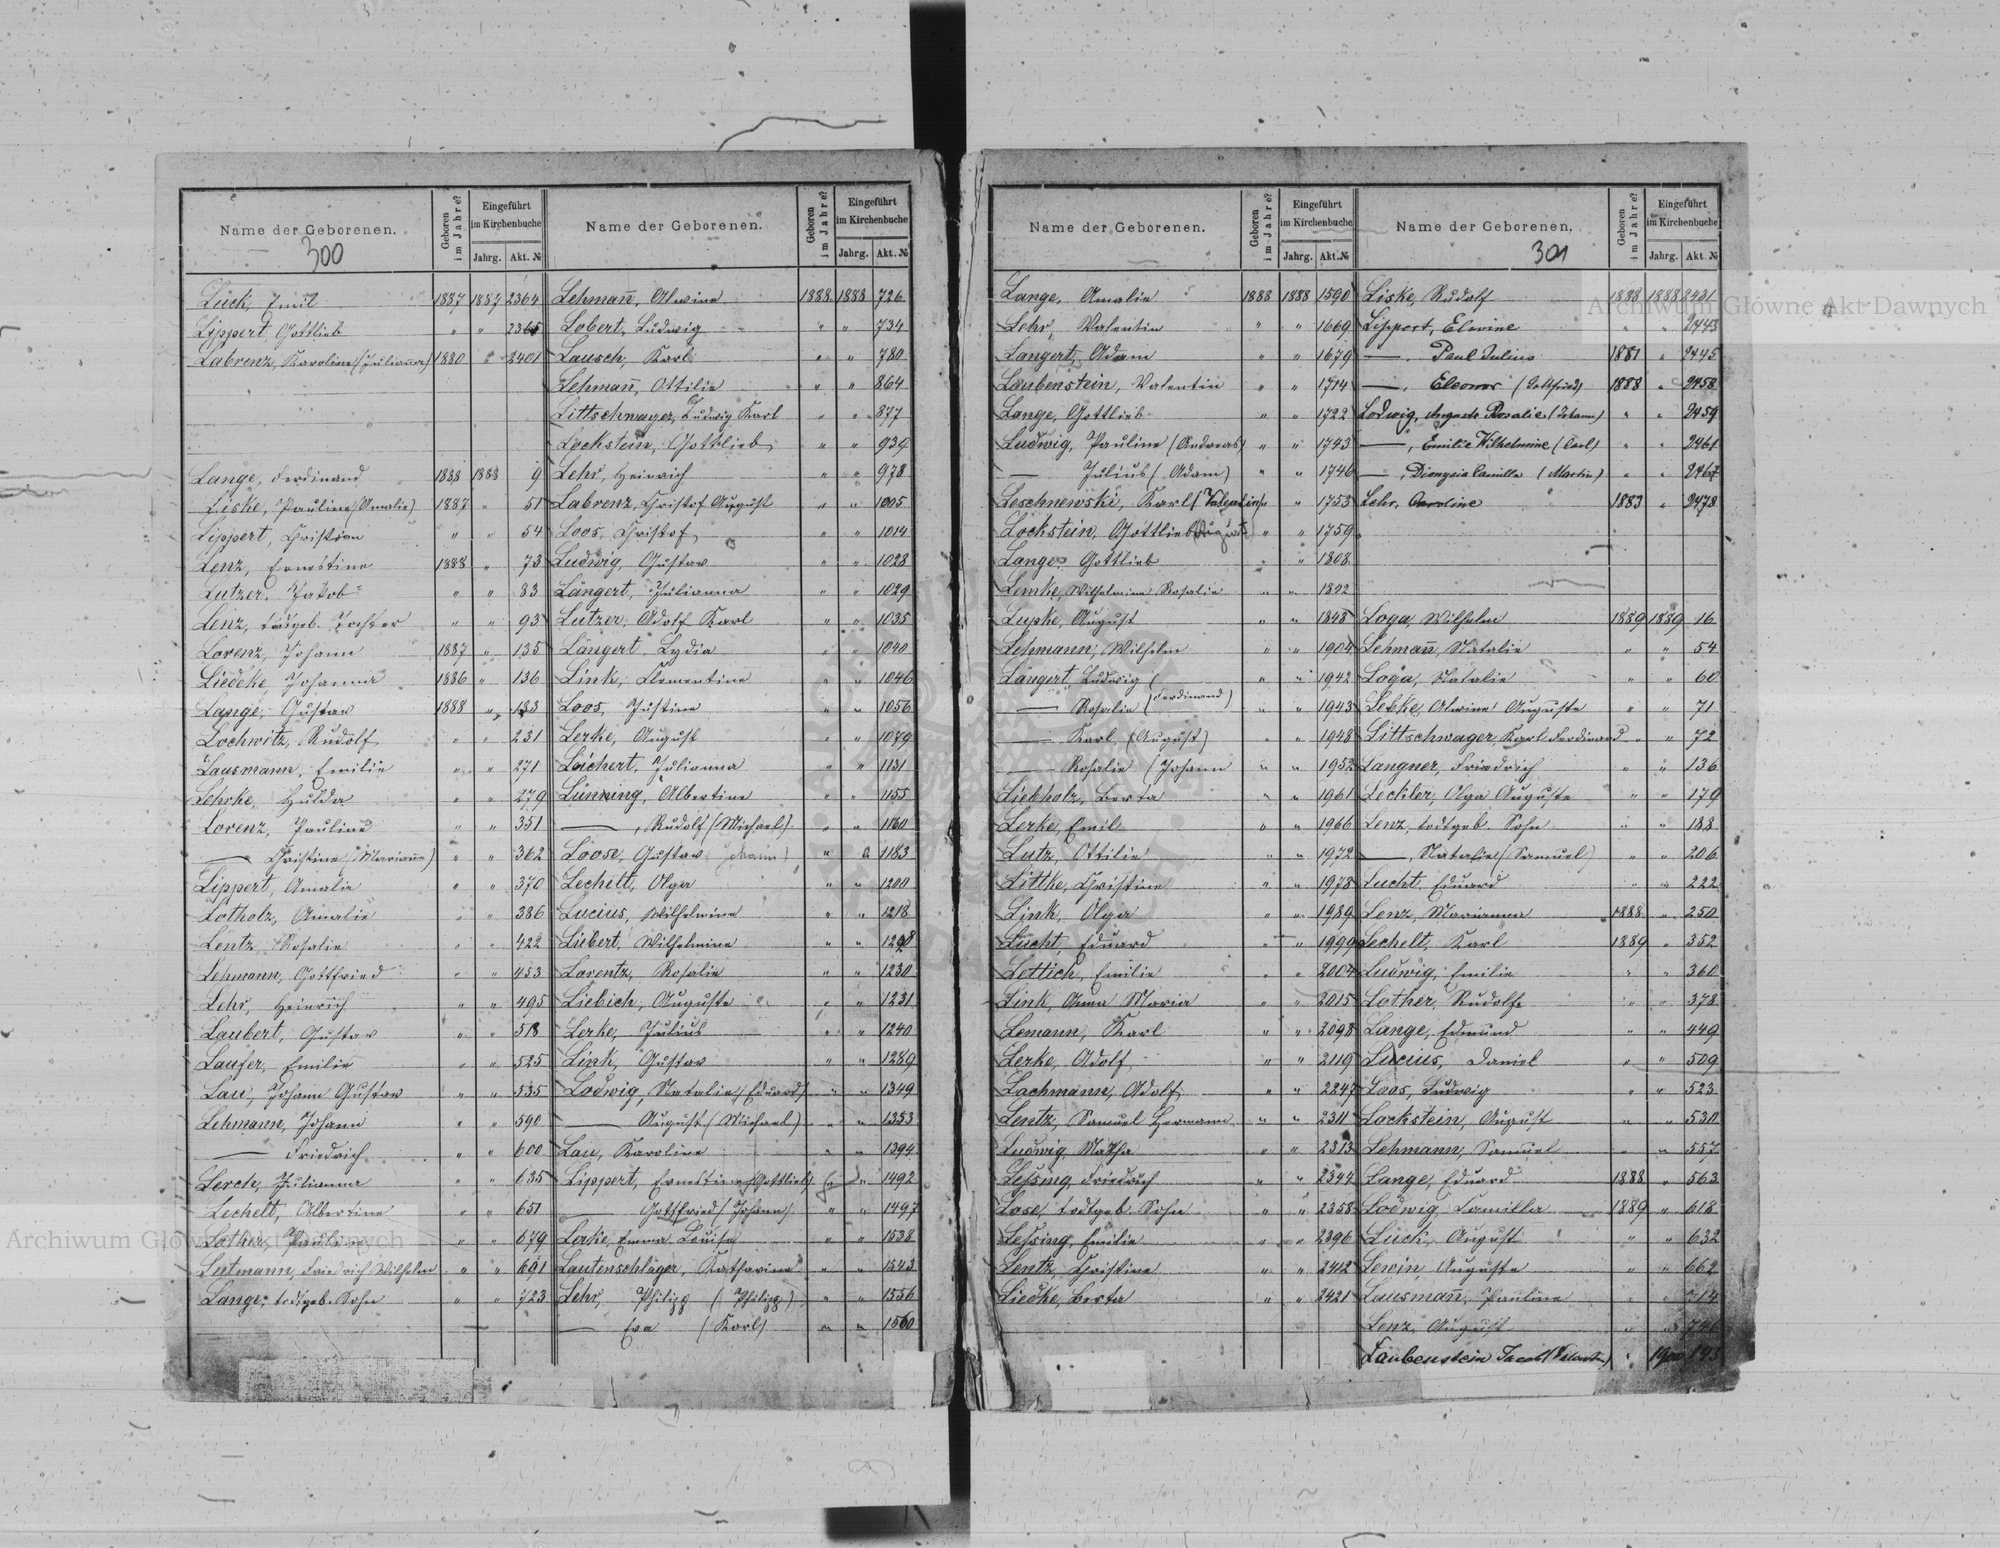 Name der Geborenen.
300
Geboren im Jahre?
Eingeführt im Kirchenbuche
Jahrg. Akt. №
Lück, Emil 1887 1887 2364
Lippert, Gottlieb " " 2365
Labrenz, Karoline (Julianna) 1880 " 2401
Lange, Ferdinand 1888 1888 9
Liske, Pauline (Amalie) 1887 " 51
Lippert, Christian " " 54
Lenz, Ernestine 1888 " 73
Lutzer, Jakob " " 83
Lenz, todtgeb. Tochter " " 93
Lorenz, Johann 1887 " 135
Liedcke, Johanna 1886 " 136
Lange, Gustav 1888 " 183
Lochwitz, Rudolf " " 231
Lausmann, Emilie " " 271
Lehrke, Hulda " " 279
Lorenz, Pauline " " 351
— Christine (Marianne) " " 362
Lippert, Amalie " " 370
Lotholz, Amalie " " 386
Lentz, Rosalie " " 422
Lehmann, Gottfried " " 453
Lehr, Heinrich " " 495
Laubert, Gustav " " 518
Laufer, Emilie " " 525
Lau, Johann Gustav " " 535
Lehmann, Johann " " 590
— Friedrich " " 600
Lerch, Julianna " " 635
Lechelt, Albertine " " 651
Lother, Pauline " " 679
Lutmann, Friedrich Wilhelm " " 691
Lange, todtgeb. Sohn " " 723
Name der Geborenen.
Geboren im Jahre?
Eingeführt im Kirchenbuche
Jahrg. Akt. №
Lehmañ, Alwine 1888 1888 726
Lobert, Ludwig " " 734
Lausch, Karl " " 780
Lehmañ, Ottilie " " 864
Littschwager, Ludwig Karl " " 877
Lockstein, Gottlieb " " 939
Lehr, Heinrich " " 978
Labrenz, Christof August " " 1005
Loos, Christof " " 1014
Ludwig, Gustav " " 1028
Längert, Julianna " " 1029
Lutzer, Adolf Karl " " 1035
Längert, Lydia " " 1040
Link, Clementine " " 1046
Loos, Justine " " 1056
Lerke, August " " 1079
Leichert, Julianna " " 1131
Lünning, Albertine " " 1155
—, Rudolf (Michael) " " 1160
Loose, Gustav (Johann) " " 1183
Lechelt, Olga " " 1200
Lucius, Wilhelmine " " 1218
Liebert, Wilhelmine " "
Lorentz, Rosalie " " 1230
Liebich, Auguste " " 1231
Lerke, Julius " " 1240
Link, Gustav " " 1289
Lodwig, Natalie (Eduard) " " 1349
— August (Michael) " " 1353
Lau, Karoline " " 1394
Lippert, Ernestine (Gottlieb) " " 1492
— Gottfried (Johann) " " 1497
Lerke, Emma Louise " " 1538
Lautenschläger, Katharina " " 1543
Lehr, Philipp (Philipp) " " 1556
— Eva (Karl) " " 1560
Name der Geborenen.
Geboren im Jahre?
Eingeführt im Kirchenbuche
Jahrg. Akt. №
Lange, Amalie 1888 1888 1590
Lehr, Valentin " " 1669
Langert, Adam " " 1679
Laubenstein, Valentin " " 1714
Lange, Gottlieb " " 1722
Ludwig, Pauline (Andreas) " " 1743
— Julius (Adam) " " 1746
Leschnewski, Karl (Valentin) " " 1753
Lockstein, Gottlieb (August) " " 1759
Lange, Gottlieb " " 1808
Lemke, Wilhelmine Rosalie " " 1822
Lupke, August " " 1848
Lehmann, Wilhelm " " 1904
Längert, Ludwig " " 1942
— Rosalie (Ferdinand) " " 1943
— Karl (August) " " 1948
— Rosalie (Johann " " 1952
Liebholz, Berta " " 1961
Lerke, Emil " " 1966
Lutz, Ottilie " " 1972
Littke, Christine " " 1978
Link, Olga " " 1989
Lucht, Eduard " " 1999
Lettich, Emilie " " 2004
Link, Anna Maria " " 2015
Lemann, Karl " " 2098
Lerke, Adolf " " 2119
Lachmann, Adolf " " 2247
Lentz, Samuel Hermann " " 2311
Ludwig, Matha " " 2313
Lessing, Friedrich " " 2344
Lose, todtgeb. Sohn " " 2358
Lessing, Emilie " " 2396
Lentz, Christine " " 2412
Liedke, Berta " " 2421
Name der Geborenen.
301
Geboren im Jahre?
Eingeführt im Kirchenbuche
Jahrg. Akt. №
Liske, Rudolf 1888 1888 2431
Lippert, Elwine " " 2443
—, Paul Julius 1881 " 2445
—, Eleonor (Gottfried) 1888 " 2458
Lodwig, Auguste Rosalie (Johann) " " 2459
—, Emilie Wilhelmine (Carl) " " 2461
—, Dionysia Camilla (Martin) " " 2467
Lehr, Caroline 1883 " 2478
Loga, Wilhelm 1889 1889 16
Lehmañ, Natalie " " 54
Loga, Natalie " " 60
Lebke, Alwine Auguste " " 71
Littschwager, Karl Ferdinand " " 72
Langner, Friedrich " " 136
Leckler, Olga Auguste " " 179
Lenz, todtgeb. Sohn " " 188
—, Natalie (Samuel) " " 206
Lucht, Eduard " " 222
Lenz, Marianna 1888 " 250
Lechelt, Karl 1889 " 352
Ludwig, Emilie " " 360
Lother, Rudolf " " 378
Lange, Edmund " " 449
Lucius, Daniel " " 509
Loos, Ludwig " " 523
Lockstein, August " " 530
Lehmann, Samuel " " 557
Lange, Eduard 1888 " 563
Lodwig, Camilla 1889 " 618
Lück, August " " 632
Lewin, Auguste " " 662
Lausmañ, Pauline " " 714
Lenz, August " " 741
Laubenstein Jacob (Valentin) " 1900 193
Archiwum Główne Akt Dawnych
Archiwum Główne Akt Dawnych